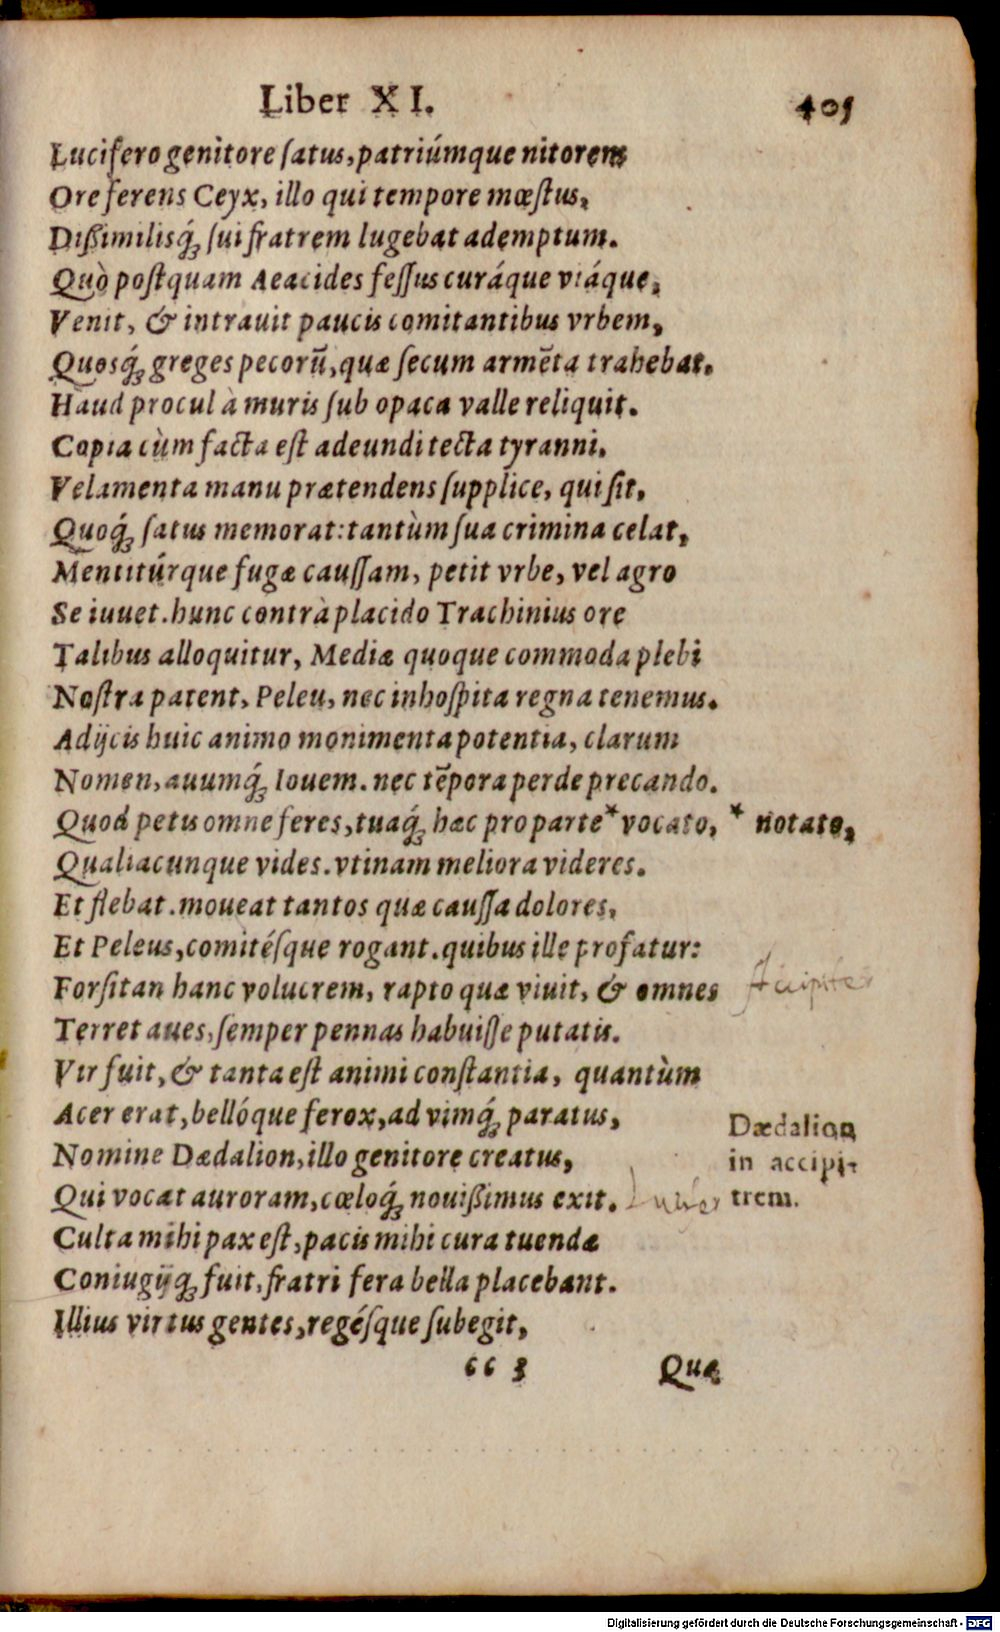 Liber XI. 405
Lucifero genitore ſatus, patriúmque nitorem
Ore ferens Ceyx, illo qui tempore mœſtus,
Dißimilisq́; ſui fratrem lugebat ademptum.
Quò poſtquam Aeacides feſſus curáque viáque,
Venit, & intrauit paucis comitantibus vrbem,
Quosq́; greges pecorū, quæ ſecum armēta trahebat.
Haud procul à muris ſub opaca valle reliquit.
Copia cùm facta eſt adeundi tecta tyranni,
Velamenta manu prætendens ſupplice, qui ſit,
Quoq́; ſatus memorat: tantùm ſua crimina celat,
Mentitúrque fugæ cauſſam, petit vrbe, vel agro
Se iuuet. hunc contrà placido Trachinius ore
Talibus alloquitur, Mediæ quoque commoda plebi
Noſtra patent, Peleu, nec inhoſpita regna tenemus.
Adijcis huic animo monimenta potentia, clarum
Nomen, auumq́; Iouem. nec tēpora perde precando.
Quod petis omne feres, tuaq́; hæc pro parte * vocato, * notato,
Qualiacunque vides. vtinam meliora videres.
Et flebat. moueat tantos quæ cauſſa dolores,
Et Peleus, comitéſque rogant. quibus ille profatur:
Forſitan hanc volucrem, rapto quæ viuit, & omnes Accipiter
Terret aues, ſemper pennas habuiſſe putatis.
Vir fuit, & tanta eſt animi conſtantia, quantùm
Acer erat, bellóque ferox, ad vimq́; paratus,
Nomine Dædalion, illo genitore creatus,
Qui vocat auroram, cœloq́; nouißimus exit. Lucifer
Culta mihi pax eſt, pacis mihi cura tuendæ
Coniugijq́; fuit, fratri fera bella placebant.
Illius virtus gentes, regéſque ſubegit,
Dædalion
in accipi-
trem.
cc 3 Quæ
Digitalisierung gefördert durch die Deutsche Forschungsgemeinschaft - DFG